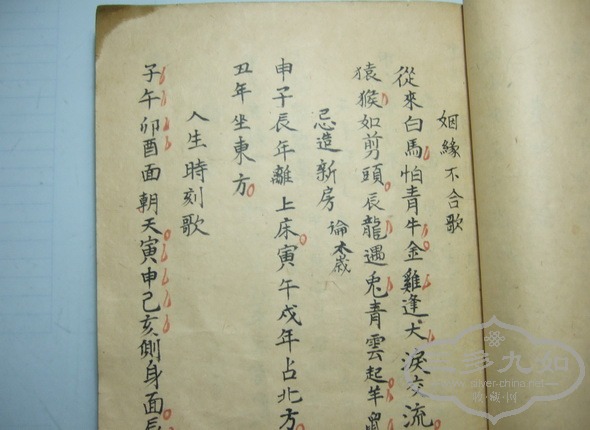 姻緣不合歌
從來白馬怕青牛金雞逢犬淚交流
猿猴如剪頭辰龍遇兎青雲起羊鼠
忌造新房 論太歲
申子辰年離上床寅午戍年占北方
丑年坐東方
人生時刻歌
子午卯酉面朝天寅申己亥側身面辰
三多九如
www.silver-china.net
收藏网